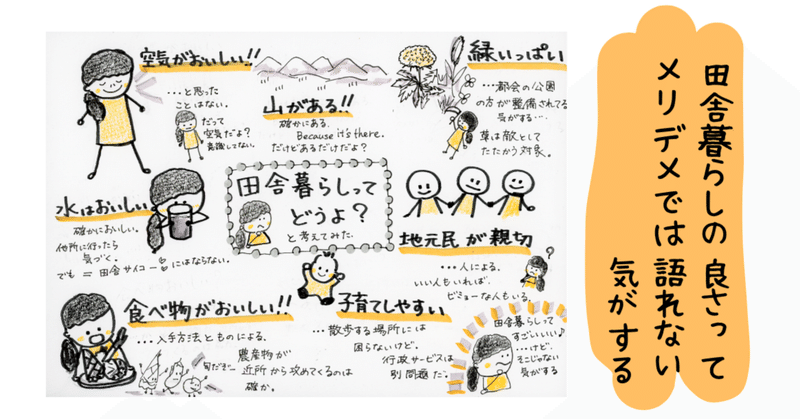 空気がおいしい!!
…と思った
ことはない。
だって
空気だよ?
意識してない。
山がある!!
確かにある。
Because it's there.
だけどあるだけだよ?
緑いっぱい
…都会の公園
の方が整備されてる
気がする…。
草は敵として
たたかう対象。
水はおいしい
確かにおいしい。
他所に行ったら
気づく。
でも = 田舎サイコー♡にはならない。
田舎暮らしって
どうよ?
と考えてみた。
地元民が親切
…人による。
いい人もいれば、
ビミョーな人もいる。
食べ物がおいしい!!
…入手方法とものによる。
旬だぜ…
農産物が
近所から攻めてくるのは
確か。
子育てしやすい
…散歩する場所には
困らないけど、
行政サービスは
別問題だ。
田舎暮らしって
すごいいい♪
…けど、
そこじゃない
気がする
田舎暮らしの良さって
メリデメでは語れない
気がする